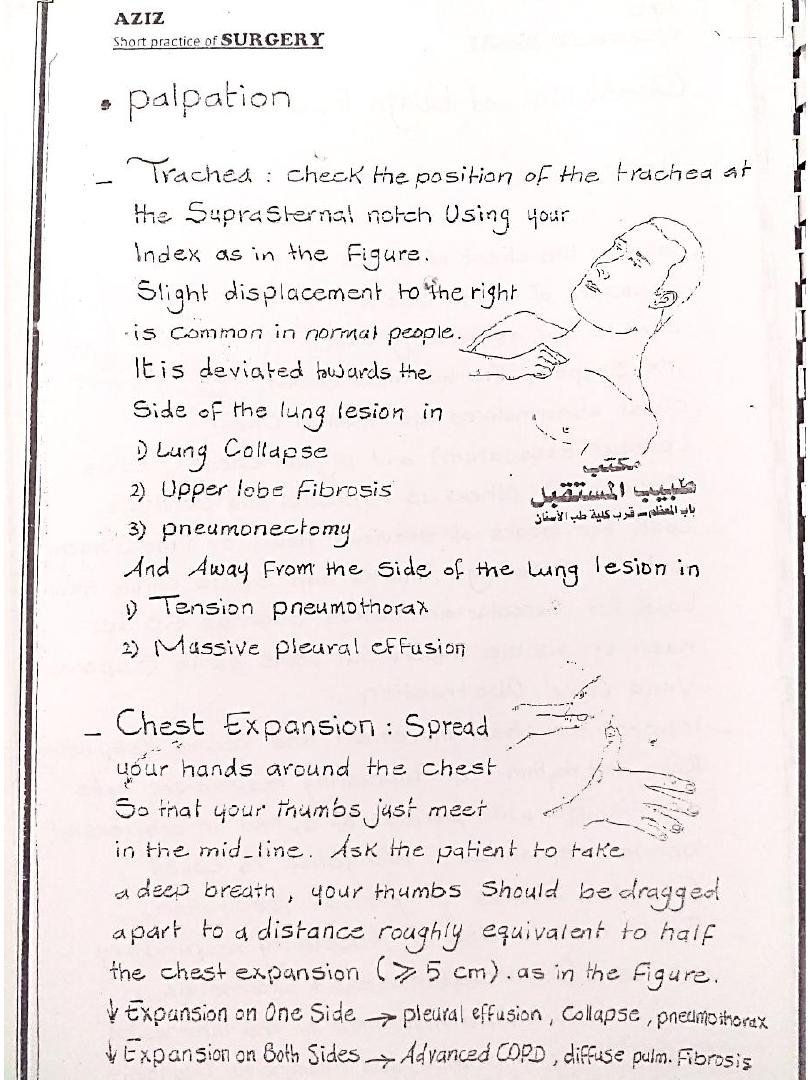 AZIZ
Short practice of SURGERY
• palpation
- Trachea : check the position of the trachea at
the Suprasternal notch Using your
Index as in the Figure.
Slight displacement to the right
is common in normal people.
It is deviated towards the
Side of the lung lesion in
1) Lung Collapse
2) Upper lobe Fibrosis
3) pneumonectomy
And Away From the Side of the Lung lesion in
1) Tension pneumothorax
2) Massive pleural effusion
مكتب
طبيب المستقبل
باب المعظم - قرب كلية طب الأسنان
- Chest Expansion : Spread
your hands around the chest
So that your thumbs just meet
in the mid-line. Ask the patient to take
a deep breath , your thumbs Should be dragged
apart to a distance roughly equivalent to half
the chest expansion (⩾ 5 cm). as in the Figure.
↓ Expansion on One Side → pleural effusion , Collapse , pneumothorax
↓ Expansion on Both Sides → Advanced COPD , diffuse pulm. Fibrosis